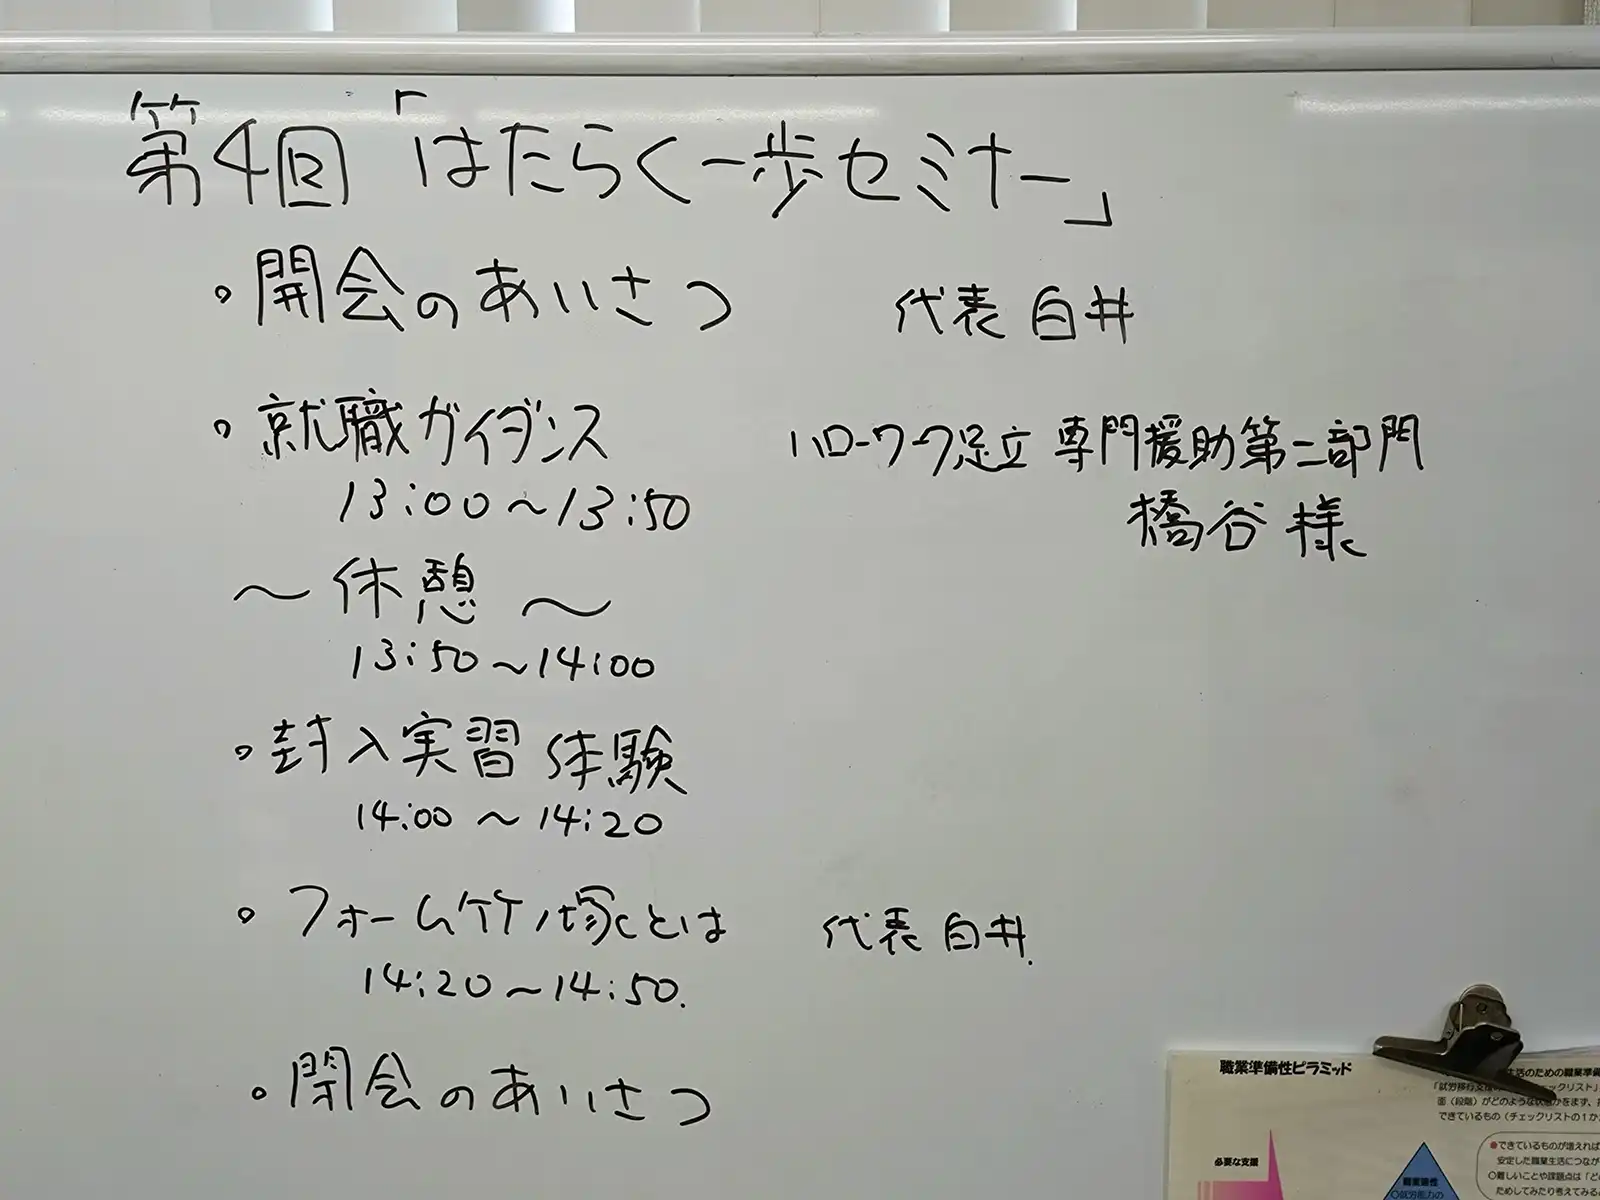 第4回「はたらく一歩セミナー」
・開会のあいさつ　代表 白井
・就職ガイダンス　ハローワーク足立 専門援助第二部門
13:00～13:50　橋谷 様
～休憩～
13:50～14:00
・封入実習 体験
14:00～14:20
・フォーム竹ノ塚とは　代表 白井.
14:20～14:50.
・閉会のあいさつ
職業準備性ピラミッド
生活のための職業準備
「就労移行支援
ェックリスト」
面（段階）がどのような
をまず、
できているもの（チェックリストの1か
必要な支援
職業適性
○就労能力の
●できているものが増えれば
安定した職業生活につなが
○難しいことや課題点は「ど
ためしてみたり考えてみる